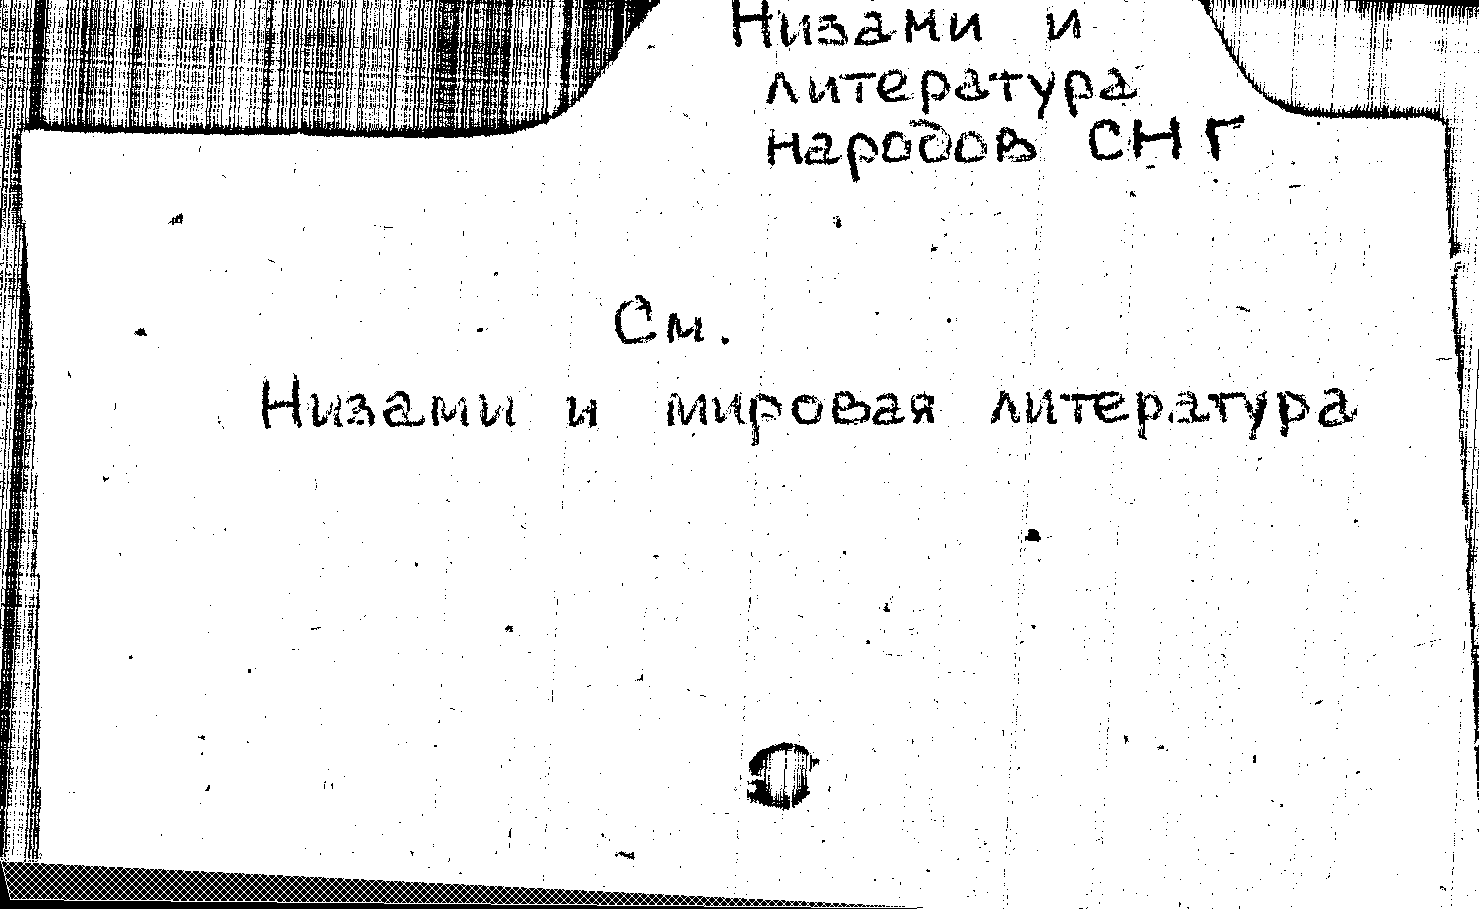 Низами и
литература
народов СНГ
См.
Низами и мировая литература